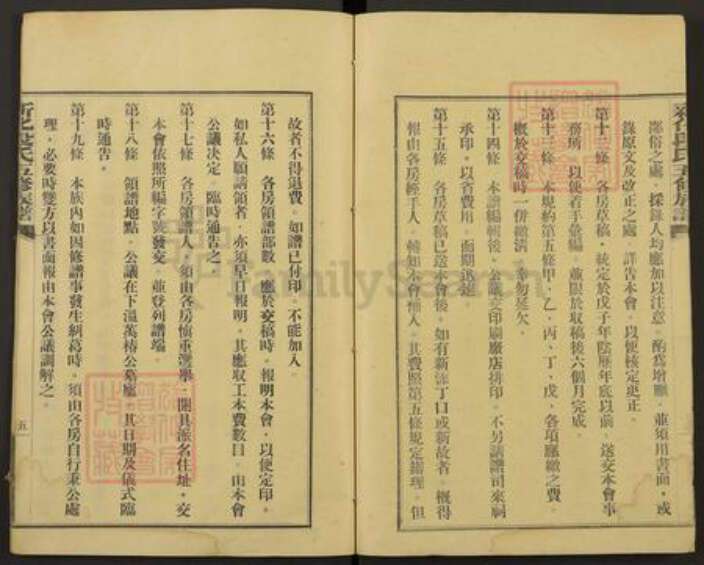 鄙俗之處。採錄人均應加以注意。酌為增刪。並須用書面。或
錄原文及改正之處。詳告本會。以便核定更正。
第十二條　各房草稿。統定於戊子年陰歷年底以前。送交本會事
務所。以便着手彙編。並限於取稿後六個月完成。
第十三條　本規約第五條甲、乙、丙、丁、戊、各項應繳之費。
概於交稿時一併繳清。幸勿延欠。
第十四條　本譜編輯後。公議交印刷廠店排印。不另請譜司來祠
承印。以省費用。而期迅速。
第十五條　各房草稿已送本會後。如有新添丁口或新故者。概得
報由各房經手人。轉知本會補人。其費照第五條規定辦理。但
故者不得退費。如譜已付印。不能加入。
第十六條　各房領譜部數。應於交稿時。報明本會。以便定印。
如私人願請領者。亦須早日報明。其應取工本費數目。由本會
公議决定。臨時通告之。
第十七條　各房領譜人。須由各房慎重選舉。開具派名住址。交
本會依照所編字號發交。並登列譜端。
第十八條　領譜地點。公議在下溫萬椿公墓廳。其日期及儀式臨
時通告。
第十九條　本族內如因修譜事發生糾葛時。須由各房自行秉公處
理。必要時雙方以書面報由本會公議調解之。
五
FamilySearch